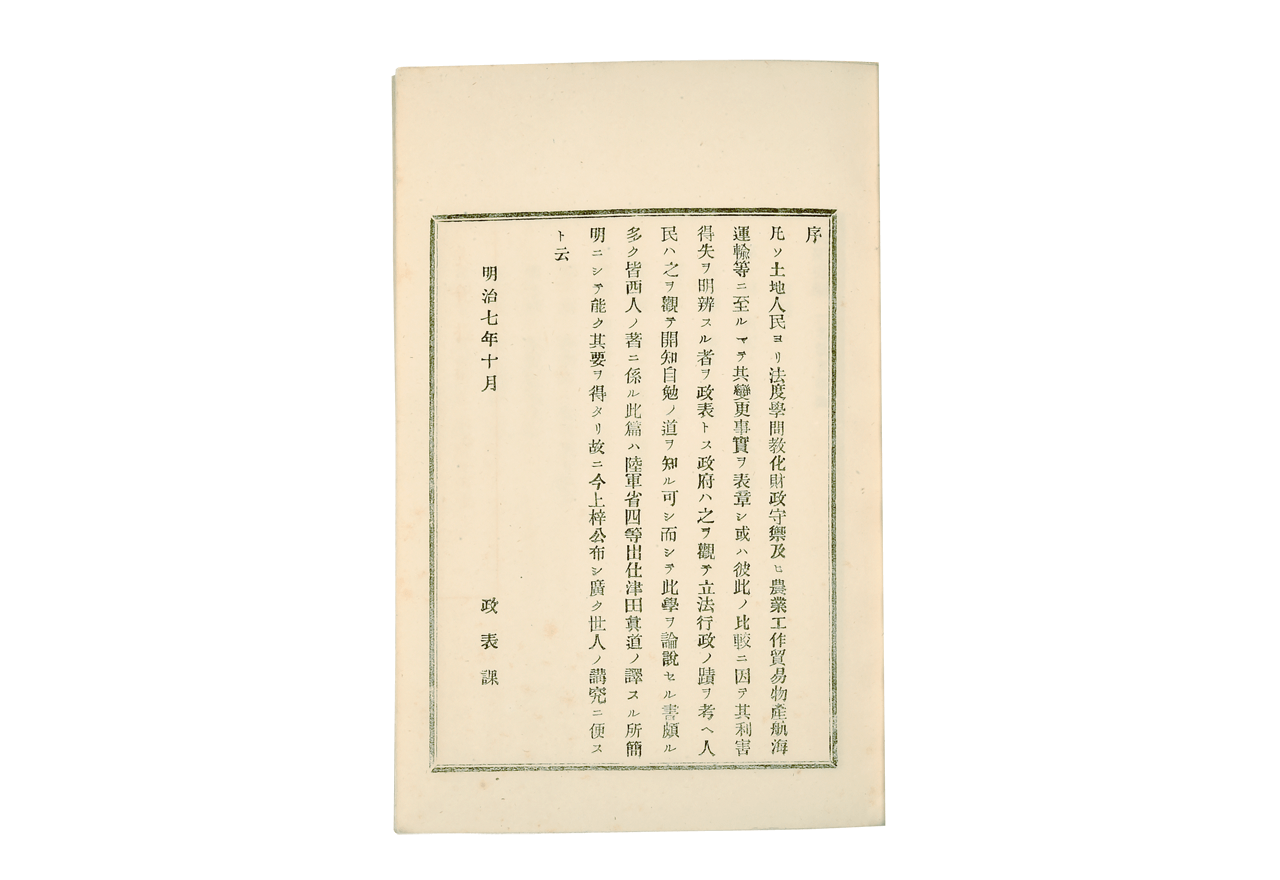 序
凡ソ土地人民ヨリ法度學問敎化財政守禦及ヒ農業工作貿易物產航海
運輸等ニ至ルマテ其變更事實ヲ表章シ或ハ彼此ノ比較ニ因テ其利害
得失ヲ明辨スル者ヲ政表トス政府ハ之ヲ觀テ立法行政ノ蹟ヲ考ヘ人
民ハ之ヲ觀テ開知自勉ノ道ヲ知ル可シ而シテ此學ヲ論說セル書頗ル
多ク皆西人ノ著ニ係ル此篇ハ陸軍省四等出仕津田眞道ノ譯スル所簡
明ニシテ能ク其要ヲ得タリ故ニ今上梓公布シ廣ク世人ノ講究ニ便ス
ト云
明治七年十月
政表課